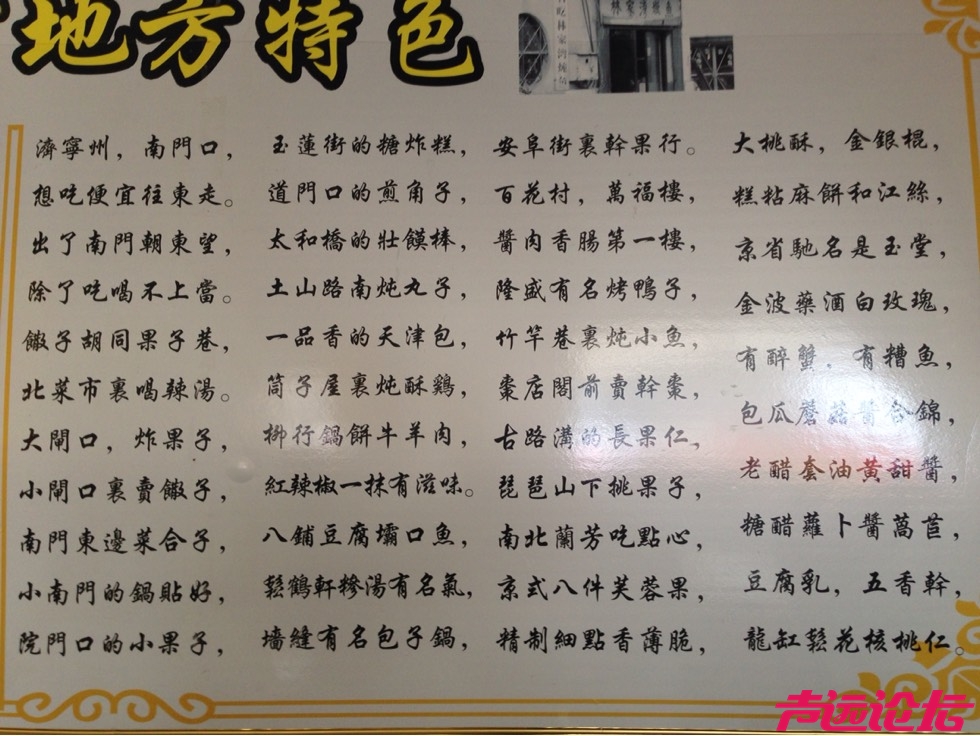 地方特色
濟寧州，南門口，
想吃便宜往東走。
出了南門朝東望，
除了吃喝不上當。
饊子胡同果子巷，
北菜市裏喝辣湯。
大閘口，炸果子，
小閘口裏賣饊子，
南門東邊菜合子，
小南門的鍋貼好，
院門口的小果子，
玉蓮街的糖炸糕，
道門口的煎角子，
太和橋的壯饃棒，
土山路南炖丸子，
一品香的天津包，
筒子屋裏炖酥鷄，
柳行鍋餅牛羊肉，
紅辣椒一抹有滋味。
八鋪豆腐壩口魚，
鬆鶴軒糝湯有名氣，
墻縫有名包子鍋，
安阜街裏幹果行。
百花村，萬福樓，
醬肉香腸第一樓，
隆盛有名烤鴨子，
竹竿巷裏炖小魚，
棗店閣前賣幹棗，
古路溝的長果仁，
琵琶山下挑果子，
南北蘭芳吃點心，
京式八件芙蓉果，
精制細點香薄脆，
大桃酥，金銀棍，
糕粘麻餅和江絲，
京省馳名是玉堂，
金波藥酒白玫瑰，
有醉蟹，有糟魚，
包瓜蘑菇醬合錦，
老醋套油黄甜醬，
糖醋蘿卜醬萵苣，
豆腐乳，五香幹，
龍缸鬆花核桃仁。
声远论坛